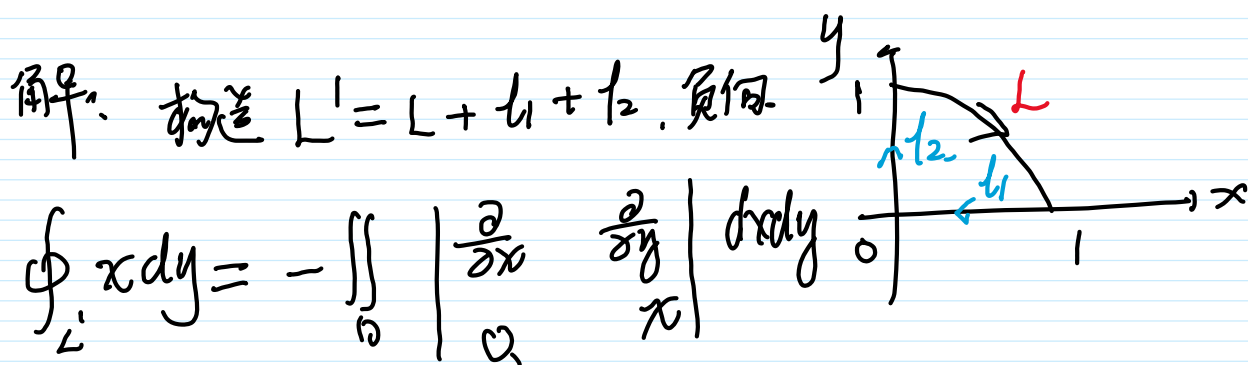 解: 构造 L' = L + l₁ + l₂. 负向.
∮_{L'} x dy = - ∬_D | ∂/∂x ∂/∂y | dxdy
0, x
y
1
L
l₂
l₁
x
0
1